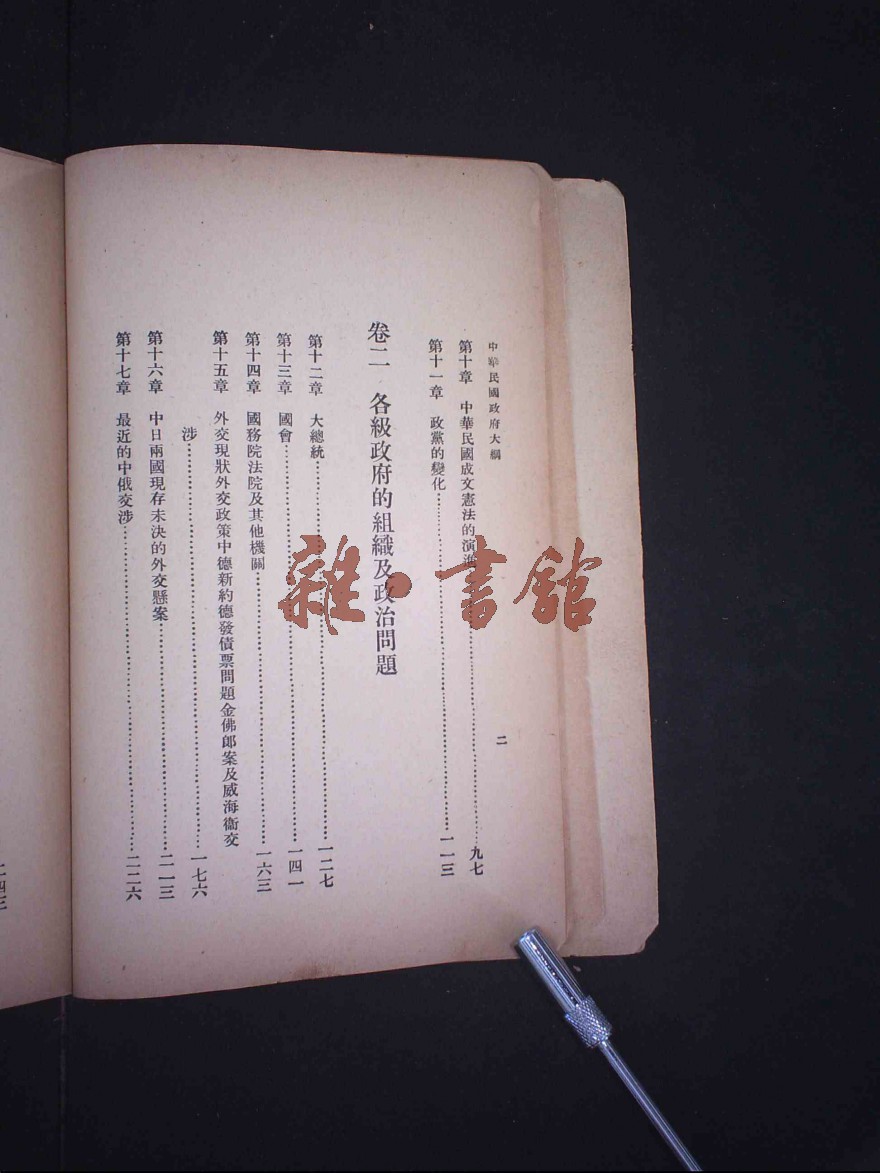 中華民國政府大綱
二
第十章 中華民國成文憲法的演進……九七
第十一章 政黨的變化……一一三
卷二 各級政府的組織及政治問題
第十二章 大總統……一二七
第十三章 國會……一四一
第十四章 國務院法院及其他機關……一六三
第十五章 外交現狀外交政策中德新約德發債票問題金佛郎案及威海衞交
涉……一七六
第十六章 中日兩國現存未決的外交懸案……二一三
第十七章 最近的中俄交涉……二二六
雜·書館